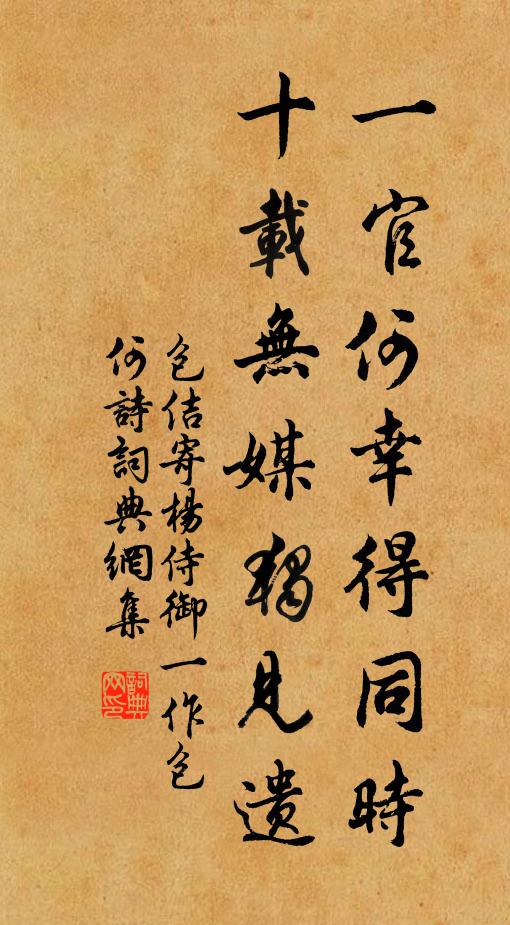 一官何幸得同時
十載無媒獨見遺
包佶寄楊侍御一作包
何詩詞典網集
詞典網印